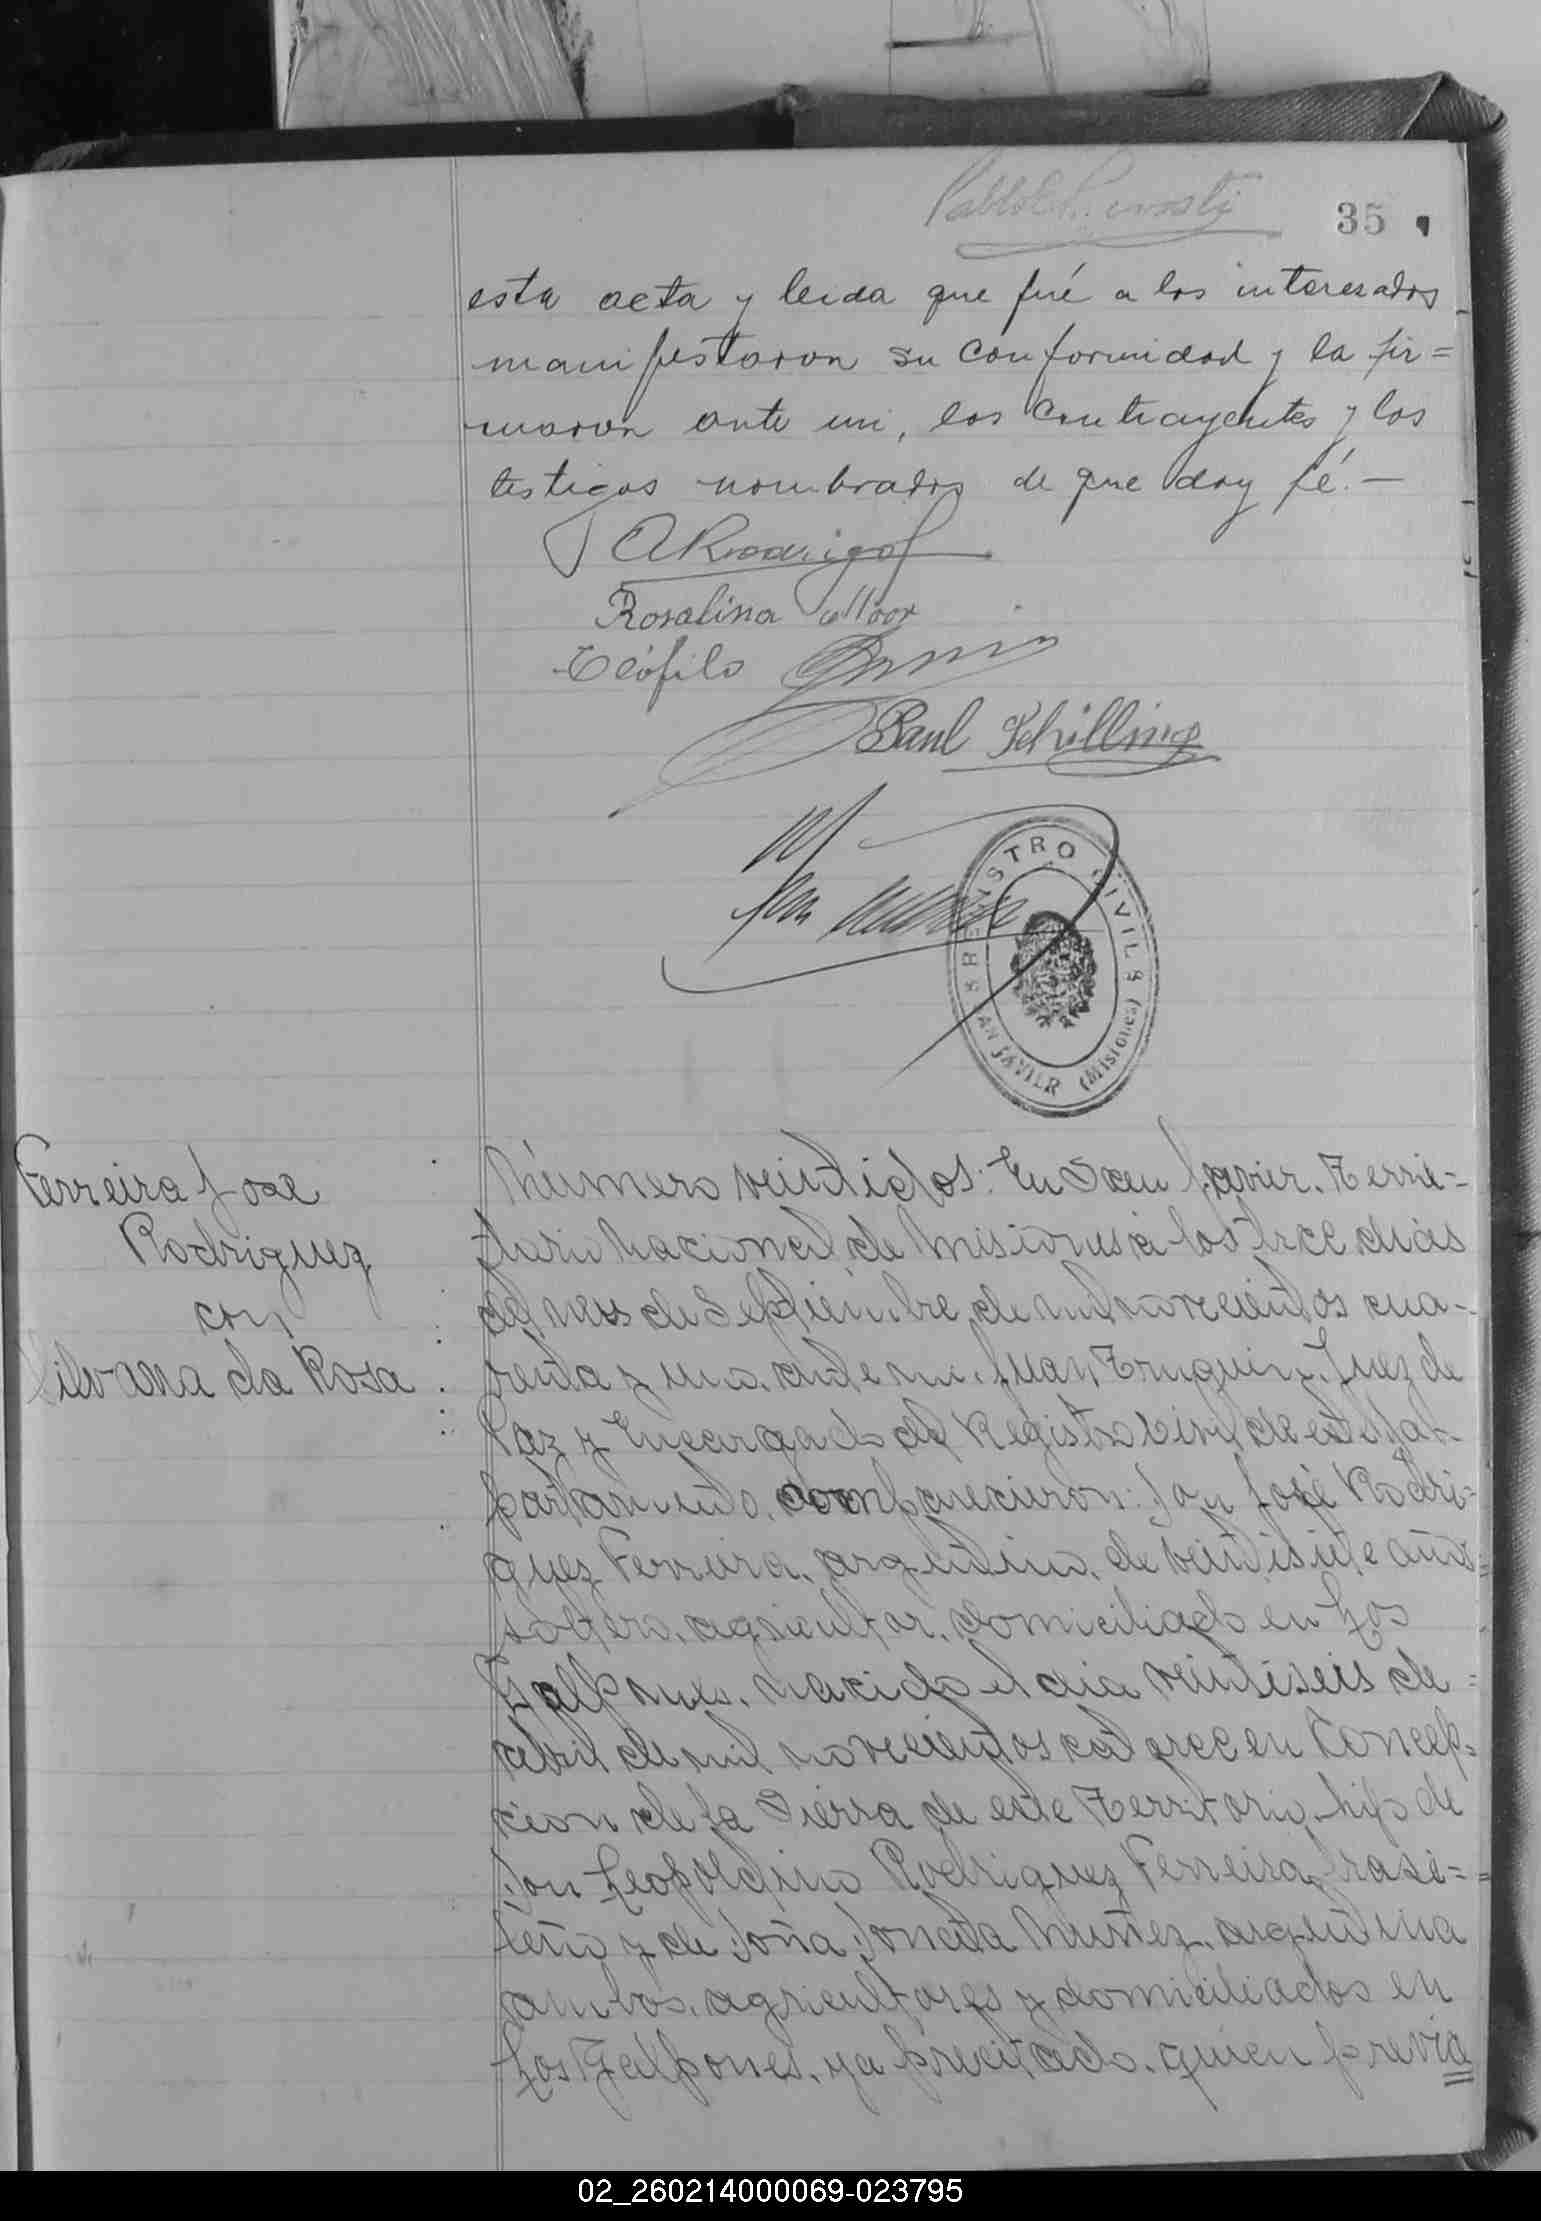 35
esta acta y leida que fué a los interesados
manifestaron su conformidad y la fir=
maron ante mi, los contrayentes y los
testigos nombrados de que doy fé.—
Rosalina
Teófilo
Paul Schilling
REGISTRO CIVIL
SAN JAVIER (Misiones)
Ferreira José
Rodriguez
con
Silvana da Rosa
Número veintidos: En San Javier, Terri-
torio Nacional de Misiones a los trece dias
del mes de Septiembre de mil novecientos cua-
renta y uno, ante mi, Juan Truguin, Juez de
Paz y Encargado del Registro Civil de este De-
partamento, comparecieron: Don José Rodri-
guez Ferreira, argentino, de veintisiete años=
soltero, agricultor, domiciliado en Los
Galpones, nacido el dia veintiseis de =
abril de mil novecientos catorce en Concep=
cion de la Sierra de este Territorio, hijo de
Don Leopoldino Rodriguez Ferreira, brasi=
leño y de Doña Donata Nuñez, argentina
ambos, agricultores y domiciliados en
Los Galpones, ya precitado, quien previa
02_260214000069-023795